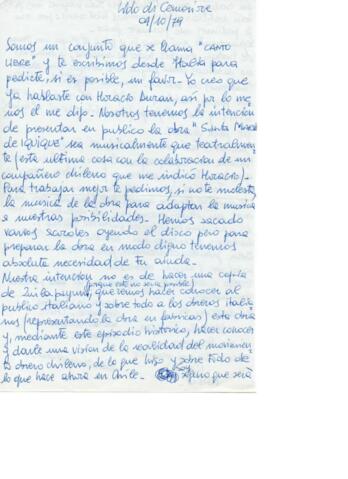 Lido di Camaiore
04/10/79
Somos un conjunto que se llama "CANTO
LIBRE" y te escribimos desde Italia para
pedirte, si es posible, un favor. Yo creo que
ya hablaste con Horacio Duran, así por lo me
nos el me dijo. Nosotros tenemos la intencion
de presentar en publico la obra "Santa Maria
de IQUIQUE" sea musicalmente que teatralmen
te (esta ultima cosa con la colaboracion de un
compañero chileno que me indicó Horacio).-
Para trabajar mejor te pedimos, si no te molesta,
la musica de la obra para adaptar la musica
a nuestras posibilidades. Hemos sacado
varios acordes oyendo el disco pero para
preparar la obra en modo digno tenemos
absoluta necesidad de tu ayuda.-
Nuestra intencion no es de hacer una copia
(porque esto no seria posible)
de Quilapayun, queremos hacer conocer al
publico Italiano y sobre todo a los obreros italia
nos (representando la obra en fabricas) esta obra
y, mediante este episodio historico, hacer conocer
y darle una vision de la realidad del movimien
to obrero chileno, de lo que hizo y sobre todo de
lo que hace ahora en Chile.- que será